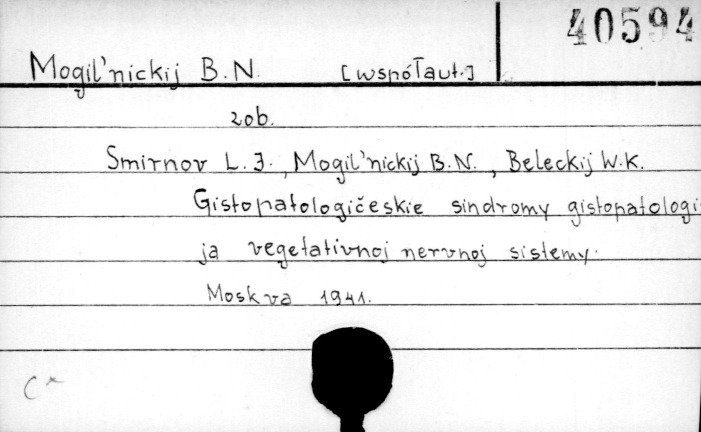 40594
Mogil'nickij B.N. [współaut.]
zob.
Smirnov L.I., Mogil'nickij B.N., Beleckij W.K.
Gistopatologičeskie sindromy gistopatologi
ja vegetativnoj nervnoj sistemy.
Moskva 1941.